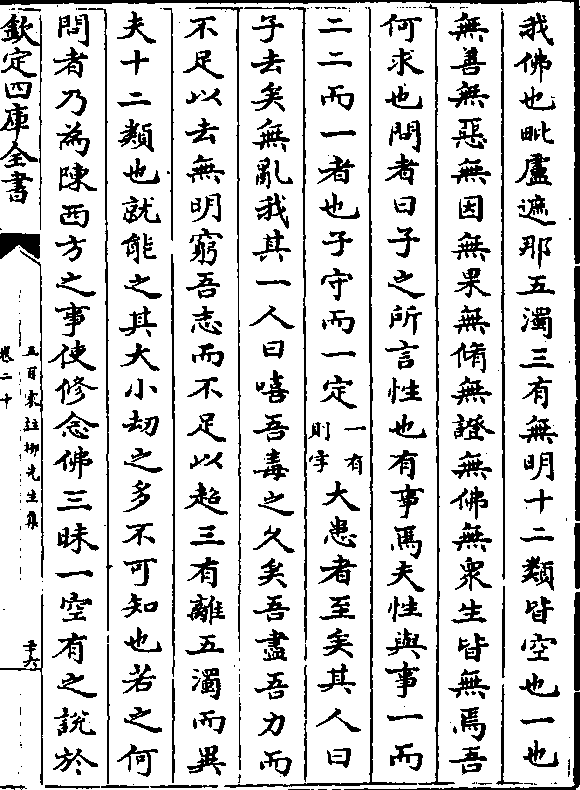 我佛也毗盧遮那五濁三有無明十二類皆空也一也
無善無惡無因無果無脩無證無佛無衆生皆無焉吾
何求也問者曰子之所言性也有事焉夫性與事一而
二二而一者也子守而一定一有則字大患者至矣其人曰
子去矣無亂我其一人曰嘻吾毒之久矣吾盡吾力而
不足以去無明窮吾志而不足以超三有離五濁而異
夫十二類也就能之其大小劫之多不可知也若之何
問者乃為陳西方之事使修念佛三昧一空有之説於
欽定四庫全書
五百家註柳先生集
卷二十
二十六